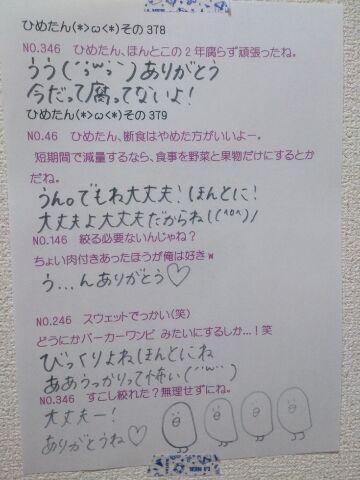 ひめたん(*>ω<*)その378
NO.346 ひめたん、ほんとこの2年腐らず頑張ったね。
うう(´;ω;`)ありがとう
今だって腐ってないよ!
ひめたん(*>ω<*)その379
NO.46 ひめたん、断食はやめた方がいいよー。
短期間で減量するなら、食事を野菜と果物だけにするとか
だね。
うん。でもね大丈夫!ほんとに!
大丈夫よ大丈夫だからね!(^o^)ノ
NO.146 絞る必要ないんじゃね?
ちょい肉付きあったほうが俺は好きw
う...んありがとう♡
NO.246 スウェットでっかい(笑)
どうにかパーカーワンピ みたいにするしか...!笑
びっくりよねほんとにね
ああうっかりって怖い(´;ω;`)
NO.346 すこし絞れた?無理せずにね。
大丈夫ー!
ありがとうね♡